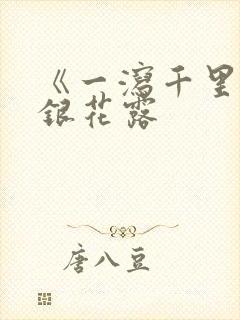 《一瀉千里
銀花露
唐八豆